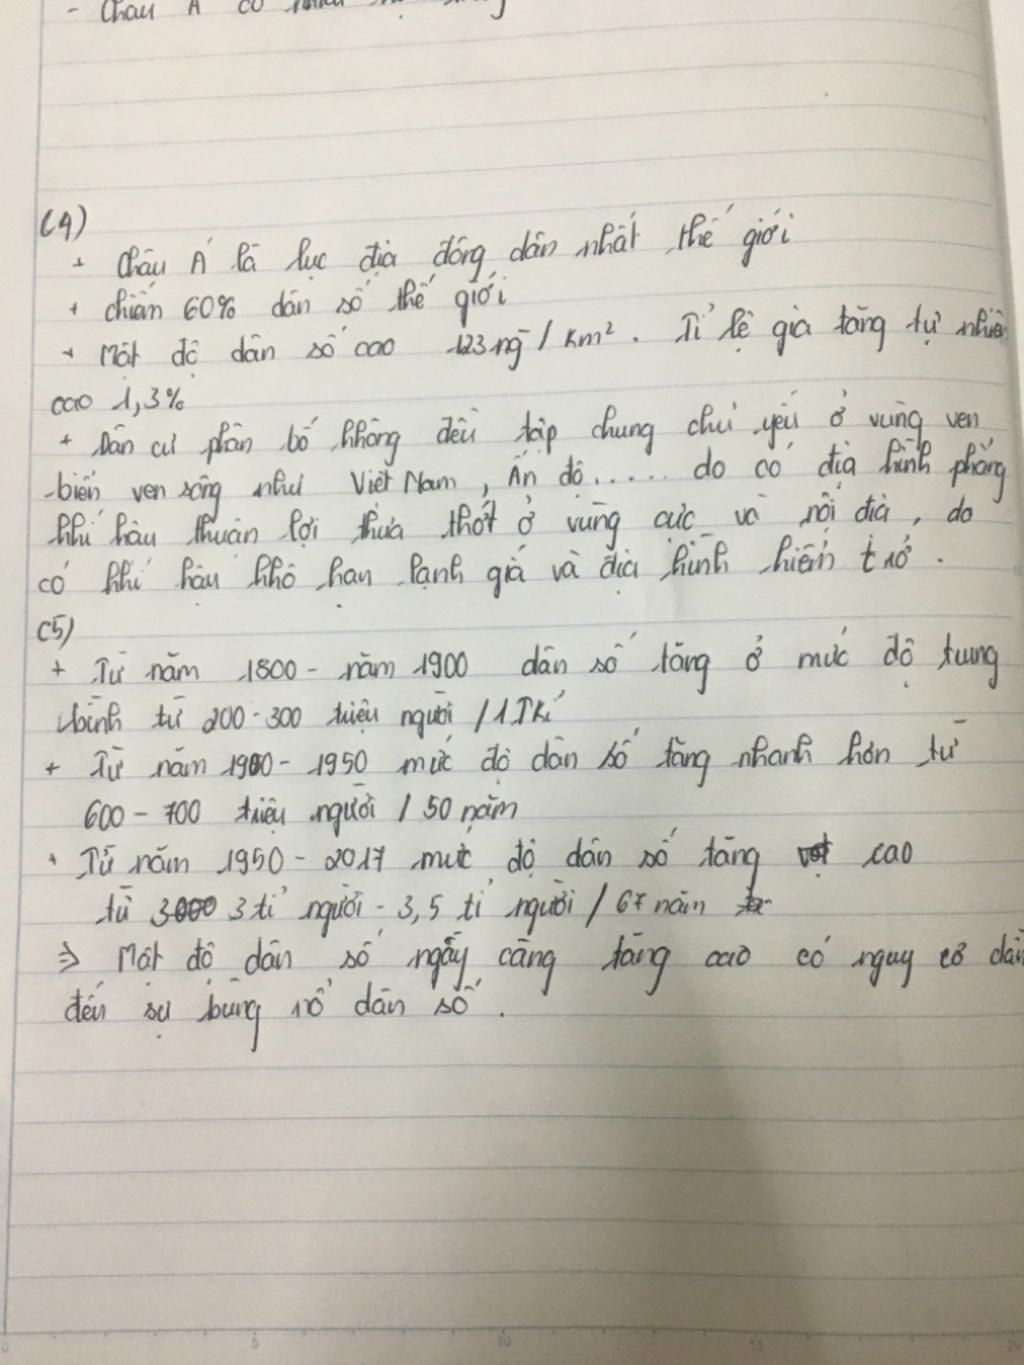 - Châu Á có
(4)
+ Châu Á là lục địa đông dân nhất thế giới
+ chiến 60% dân số thế giới
+ Mật độ dân số cao 123 ng / Km². Tỉ lệ gia tăng tự nhiên
cao 1,3%
+ Dân cư phân bố không đều tập chung chủ yếu ở vùng ven
biển ven sông như Việt Nam, Ấn độ..... do có địa hình phẳng
khí hậu thuận lợi thưa thớt ở vùng cực và nội địa, do
có khí hậu khô hạn lạnh giá và địa hình hiểm trở.
(5)
+ Từ năm 1800 - năm 1900 dân số tăng ở mức độ trung
bình từ 200 - 300 triệu người / 1 TKỉ
+ Từ năm 1900 - 1950 mức độ dân số tăng nhanh hơn từ
600 - 700 triệu người / 50 năm
+ Từ năm 1950 - 2017 mức độ dân số tăng vọt cao
từ 3000 3 tỉ người - 3,5 tỉ người / 67 năm
⇒ Mật độ dân số ngày càng tăng cao có nguy cơ dẫn
đến sự bùng nổ dân số.
0 5 10 15 20